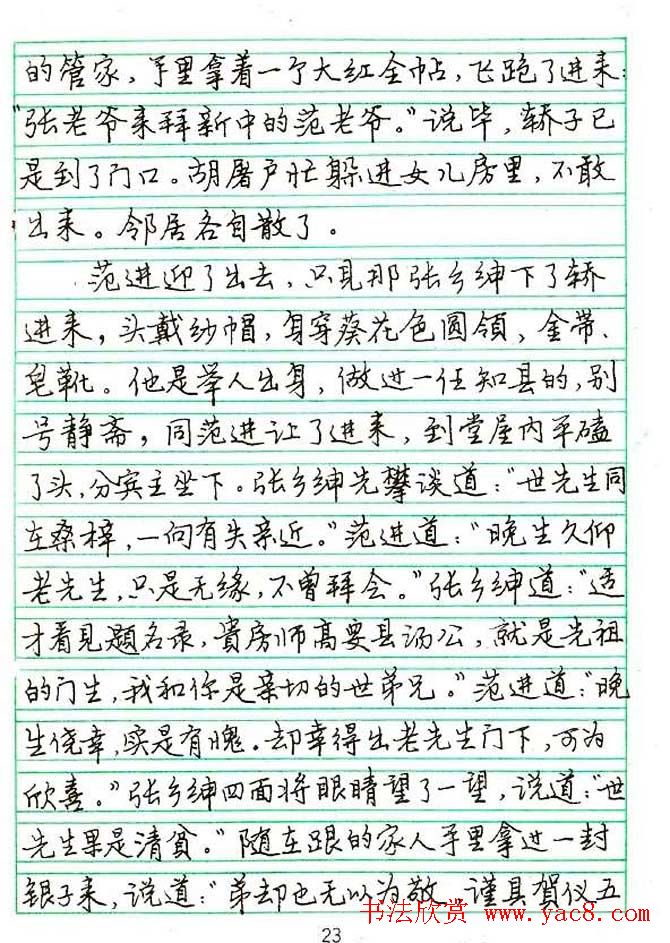 的管家，手里拿着一个大红全帖，飞跑了进来：
“张老爷来拜新中的范老爷。”说毕，轿子已
是到了门口。胡屠户忙躲进女儿房里，不敢
出来。邻居各自散了。
范进迎了出去，只见那张乡绅下了轿
进来，头戴纱帽，身穿葵花色圆領，金带、
皂靴。他是举人出身，做过一任知县的，别
号静斋，同范进让了进来，到堂屋内平磕
了头，分宾主坐下。张乡绅先攀谈道：“世先生同
在桑梓，一向有失亲近。”范进道：“晚生久仰
老先生，只是无缘，不曾拜会。”张乡绅道：“适
才看见题名录，貴房师高要县汤公，就是先祖
的门生，我和你是亲切的世弟兄。”范进道：“晚
生侥幸，实是有愧。却幸得出老先生门下，可为
欣喜。”张乡绅四面将眼睛望了一望，说道：“世
先生果是清貧。”随在跟的家人手里拿过一封
银子来，说道：“弟却也无以为敬，谨具賀仪五
书法欣赏 www.yac8.com
23